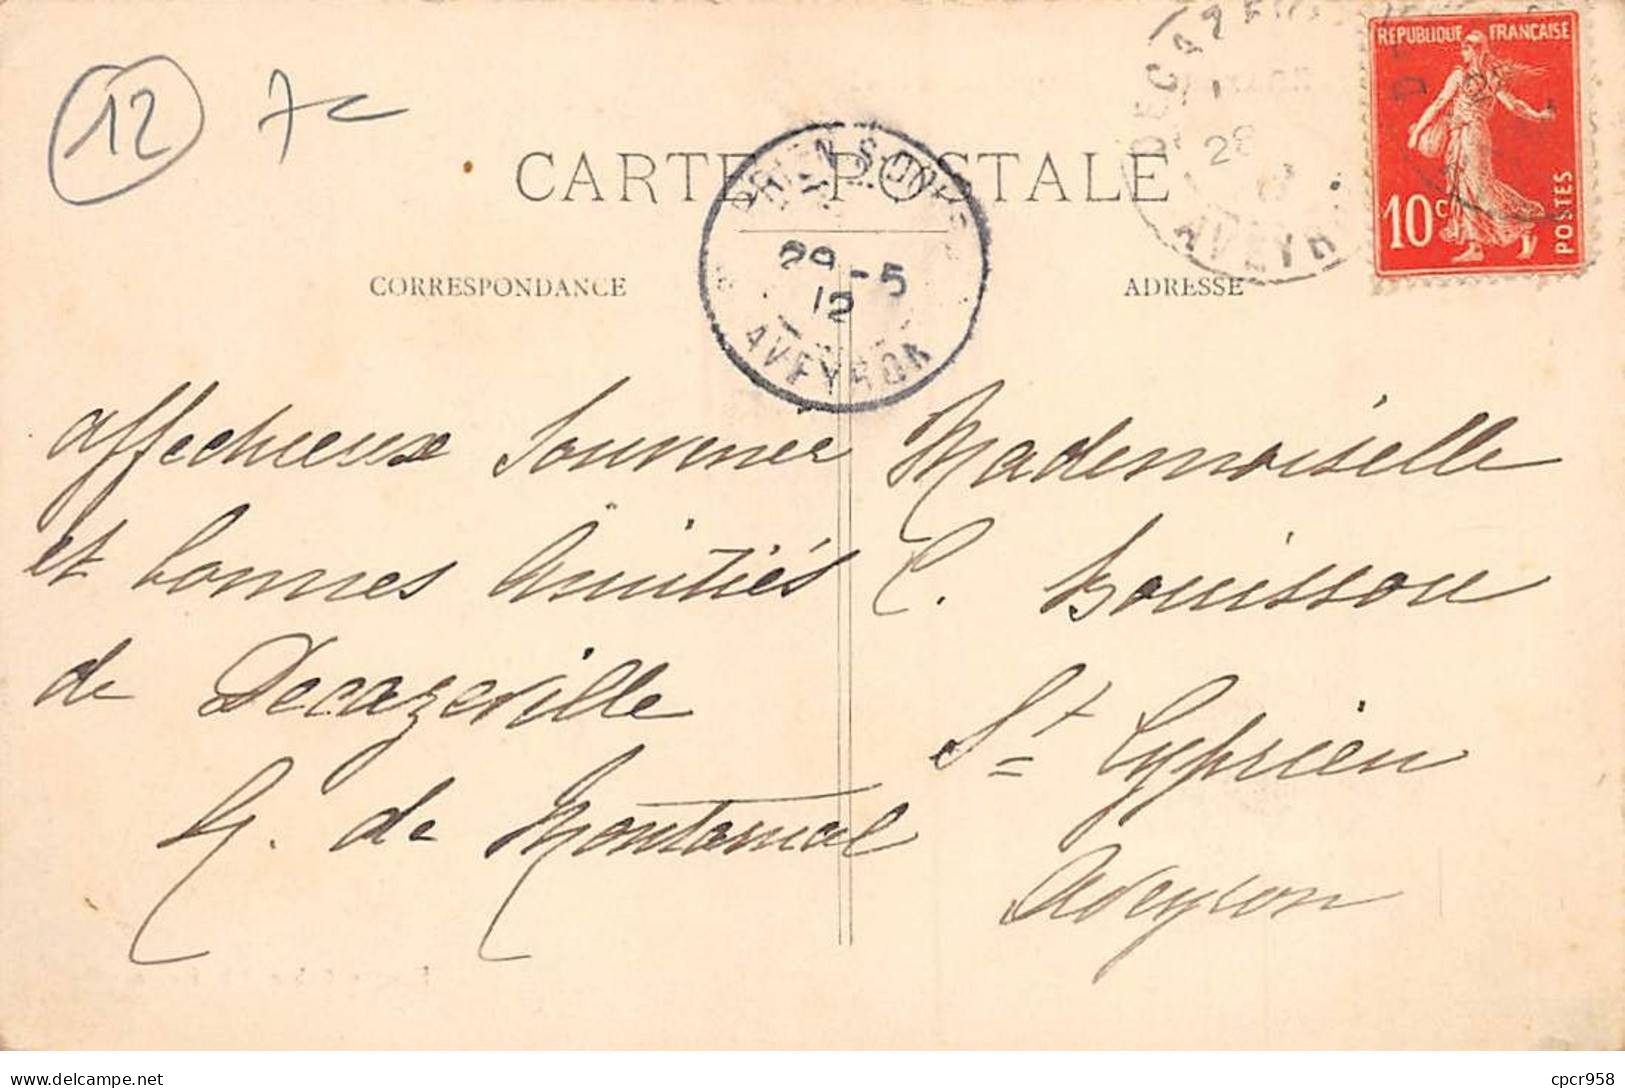 12 7c
CARTE POSTALE
REPUBLIQUE FRANÇAISE
10c
POSTES
DECAZEVILLE
28
AVEYRON
CYPRIEN S. DOURDOU
29 - 5
12
AVEYRON
CORRESPONDANCE
ADRESSE
affectueux souvenir
et bonnes amitiés
de Decazeville
de Montarnal
Mademoiselle
C. Bouissou
St Cyprien
Aveyron
cpcr958
delcampe.net